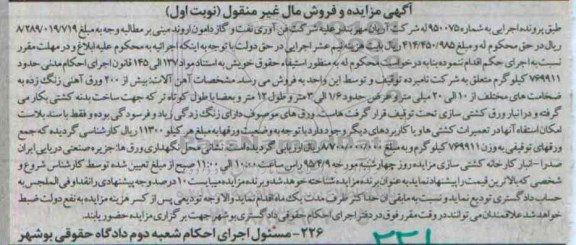 آگهی مزایده و فروش مال غیر منقول (نوبت اول)
طبق پرونده اجرایی به شماره ۹۵۰۰۷۵ له شرکت آریان مهر بندر علیه شرکت فن آوری نفت و گاز دامون اروند مبنی بر مطالبه وجه به مبلغ ۸/۲۸۹/۰۱۷/۷۱۹
ریال در حق محکوم له و مبلغ ۴۱۴/۴۵۰/۹۸۵ ریال بابت هزینه نیم عشر اجرایی در حق دولت با توجه به اینکه اجرائیه به محکوم علیه ابلاغ و در مهلت مقرر
نسبت به اجرای حکم اقدام ننموده بنا به درخواست محکوم له به منظور استیفاء حقوق خویش به استناد مواد ۱۳۷ الی ۱۴۵ قانون اجرای احکام مدنی حدود
۷۶۹۹۱۱ کیلو گرم متعلق به شرکت نامبرده توقیف و توسط این واحد به فروش می رسد. مشخصات آهن آلات: بیش از ۲۰۰ ورق آهنی زنگ زده به
ضخامت های مختلف از ۱۰ الی ۲۰ میلی متر و عرض حدود ۱/۶ الی ۳ متر و طول ۱۲ متر و بعضا با طول کوتاه تر که جهت ساخت بدنه کشتی بکار می
گرفته و در انبار ورق کشتی سازی تحت توقیف قرار گرفت هاست. ورق های موصوف دارای زنگ زدگی زیاد و فرسودگی بوده و فقط با سند بلاست
امکان استفاده آنها در تعمیرات کشتی ها و یا کاربردهای دیگر وجود دارد با توجه به وضعیت ورقها به مبلغ هر کیلو ۱۱۳۰۰ ریال کارشناسی گردیده که جمع
ورقهای توقیفی به وزن ۷۶۹۹۱۱ کیلو گرم و به مبلغ ریال ارزیابی گردیده است. نشانی محل نگهداری ورق ها: جزیره صنعتی دریایی ایران
صدرا - انبار کارخانه کشتی سازی مزایده روز چهارشنبه مورخه ۹۵/۴/۹ راس ساعت ۱۰:۰۰ الی ۱۱:۰۰ صبح از مبلغ تعیین شده توسط کارشناس شروع و
شخصی که بالاترین قیمت را پیشنهاد نماید به عنوان برنده مزایده شناخته خواهد شد و برنده مزایده میبایست ۱۰ درصد وجه پیشنهادی را نقدا و فی المجلس به
حساب دادگستری تودیع نماید و نسبت به مابقی آن حداکثر ظرف مدت یک ماه اقدام نماید والا وجه تودیعی پس از کسر هزینه مزایده به نفع دولت ضبط
خواهد شد علاقمندان می توانند در وقت مقرر فوق در دفتر اجرای احکام حقوقی دادگستری بوشهر جهت برگزاری مزایده حضور یابند.
۲۲۶- مسئول اجرای احکام شعبه دوم دادگاه حقوقی بوشهر